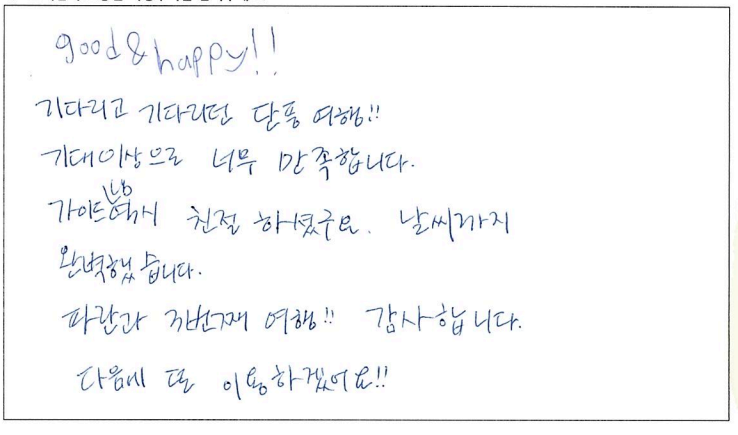 good & happy!!
기다리고 기다리던 단풍 여행!!
기대이상으로 너무 만족합니다.
가이드님 역시 친절 하셨구요. 날씨까지
완벽했습니다.
파란과 3번째 여행!! 감사합니다.
다음에 또 이용하겠어요!!